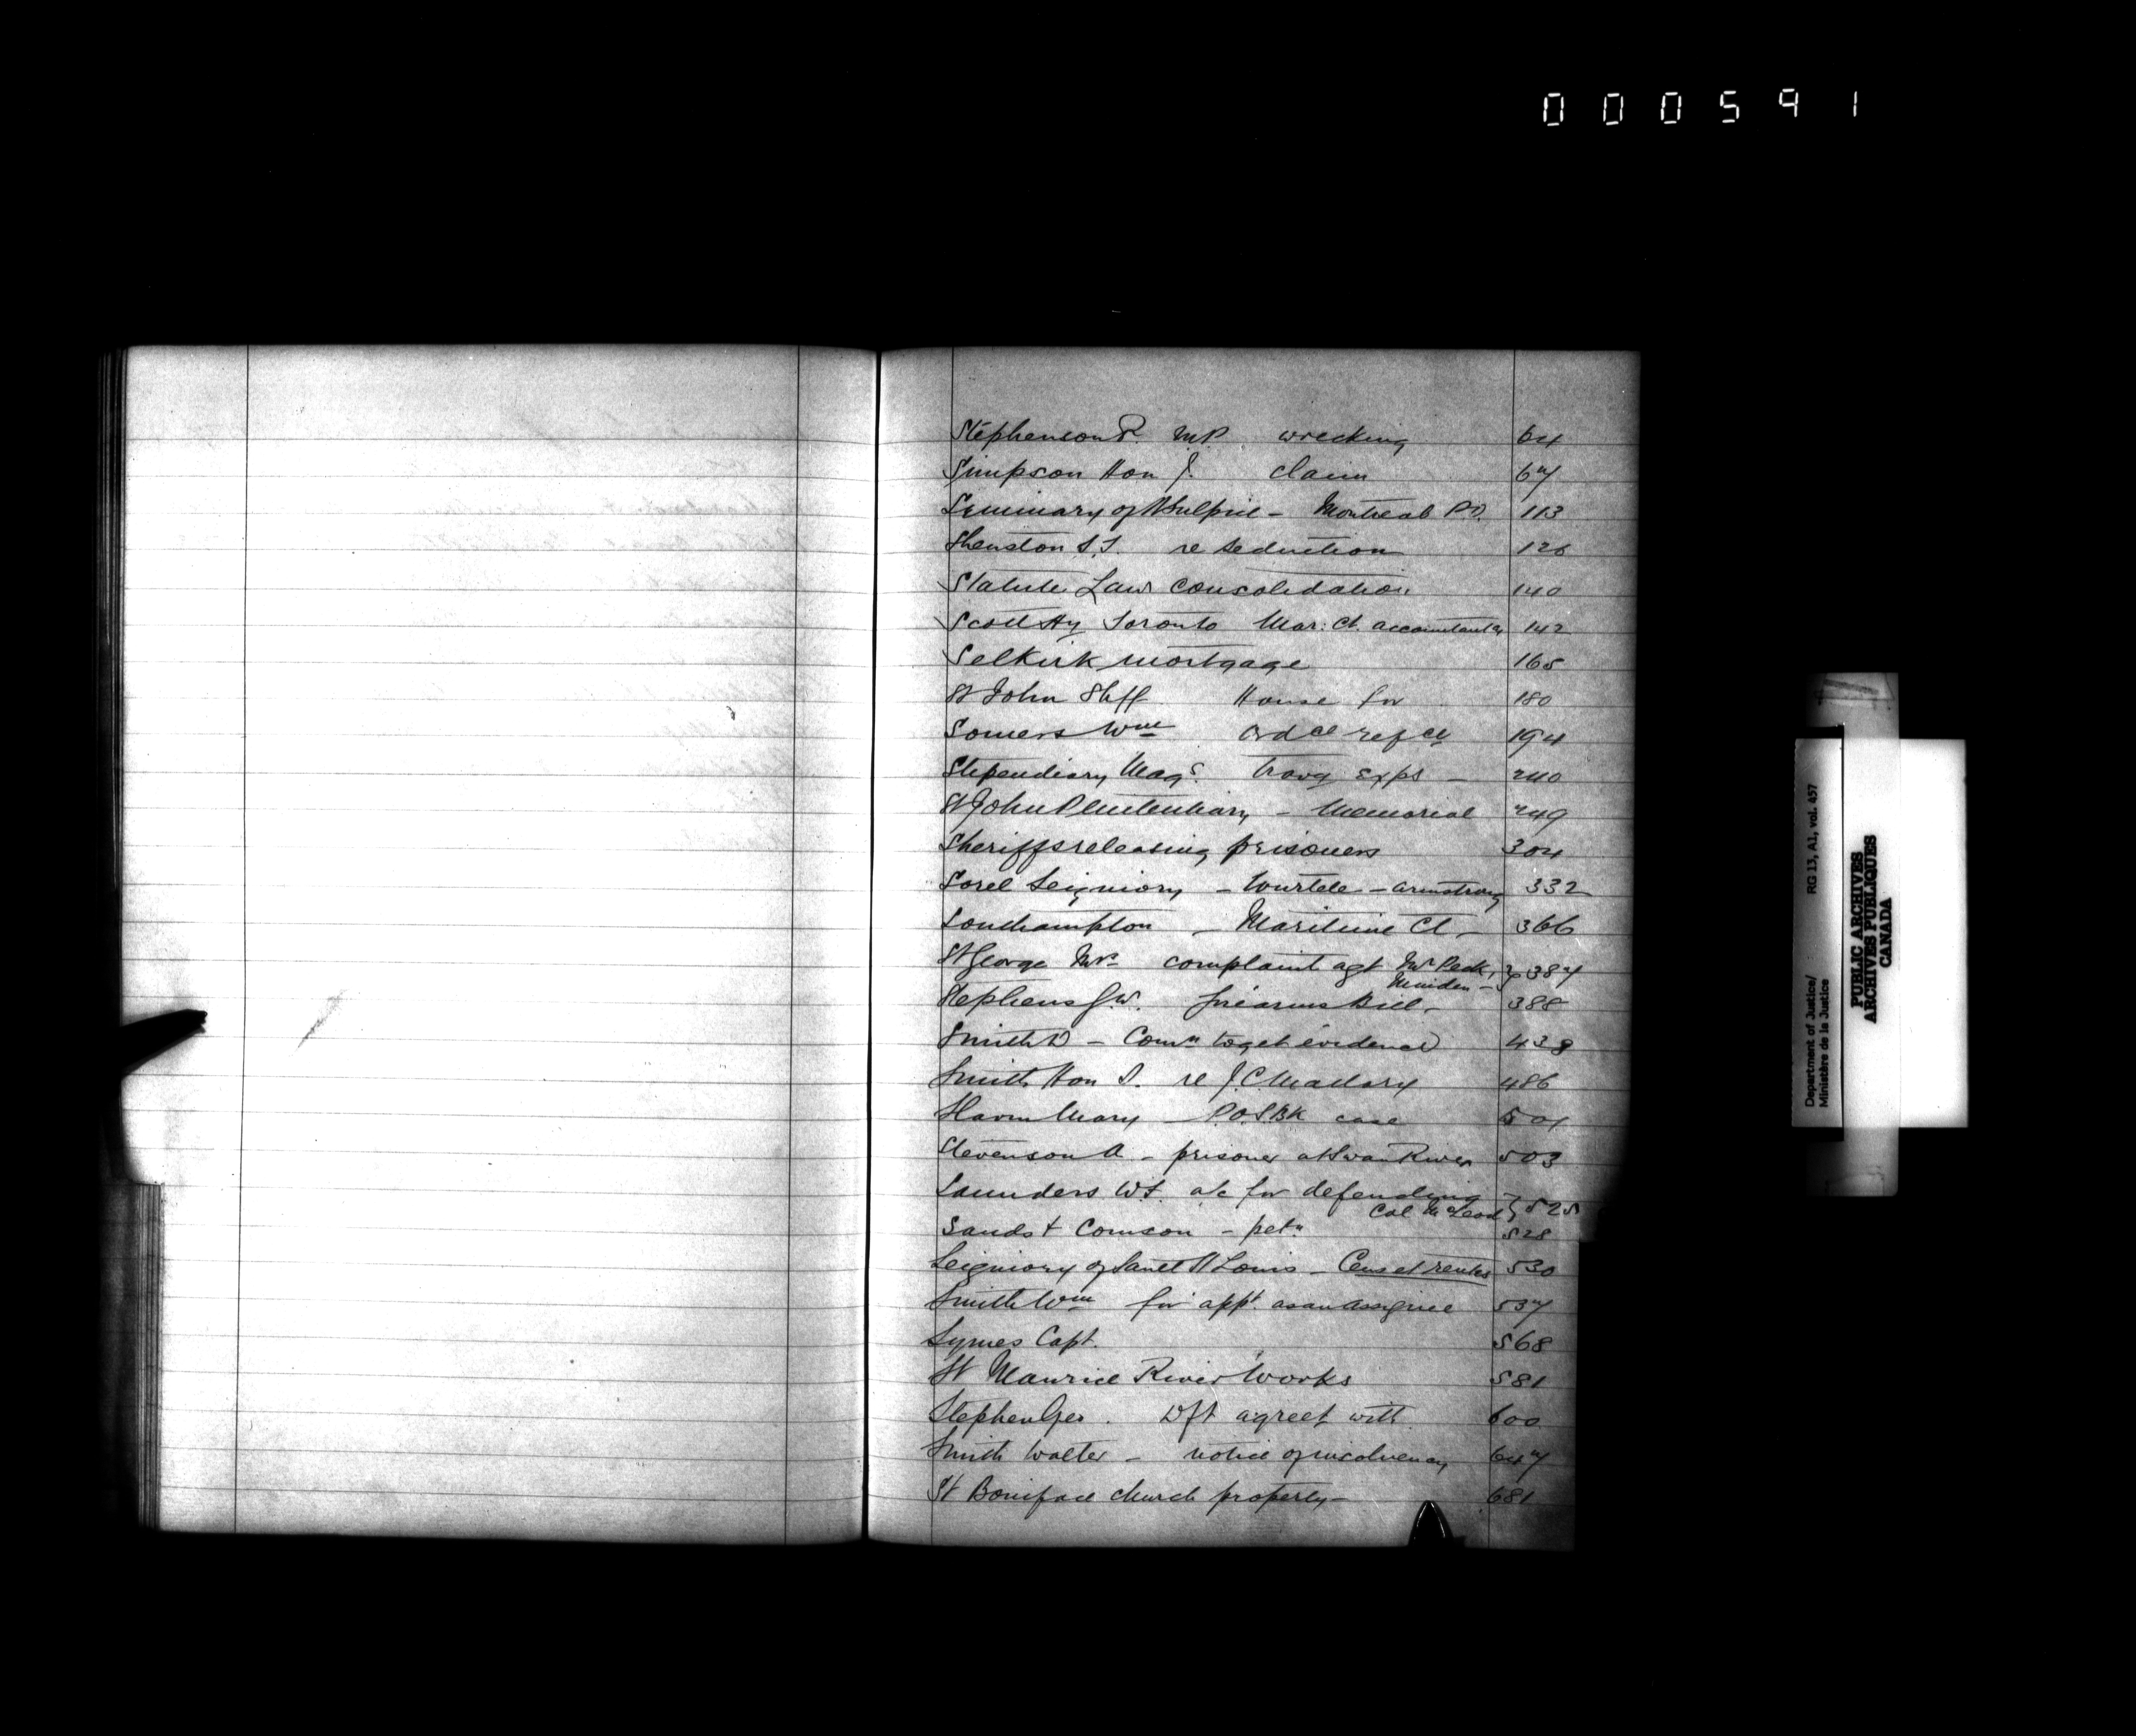 000591
Stephenson R. M.P. wrecking 64
Simpson Hon J. claim 67
Seminary of St Sulpice - Montreal P.O. 113
Shenston T.S. re seduction 126
Statute Law consolidation 140
Scott Hy Toronto Mar: Ct. accountant 142
Selkirk mortgage 165
St John Shff House for 180
Somers Wm Ordce refce 194
Stipendiary Mags. travg exps - 240
St John Penitentiary - Memorial 249
Sheriffs releasing prisoners 304
Sorel Seigniory - Wurtele - Armstrong 332
Southampton - Maritime Ct - 366
St George Mrs complaint agt Mr Peck, } 387
Minden -
Stephens J.W. firearms Bill - 388
Smith D - Comn to get evidence 438
Smith Hon S. re J.C. 486
Mary - P.O.S.BK case 501
Stevenson A - prisoner at Swan River 503
Saunders W.F. a/c for defending } 525
Col McLeod
Sands & Comson - petn 528
Seigniory of Sault St Louis - Cens et rentes 530
Smith Wm for appt as an assignee 537
Symes Capt. 568
St Maurice River Works 581
Stephen Geo. Dft agreet with 600
Smith Walter - notice of insolvency 647
St Boniface church property - 681
Department of Justice/ RG 13, A1, vol. 457
Ministère de la Justice
PUBLIC ARCHIVES
ARCHIVES PUBLIQUES
CANADA